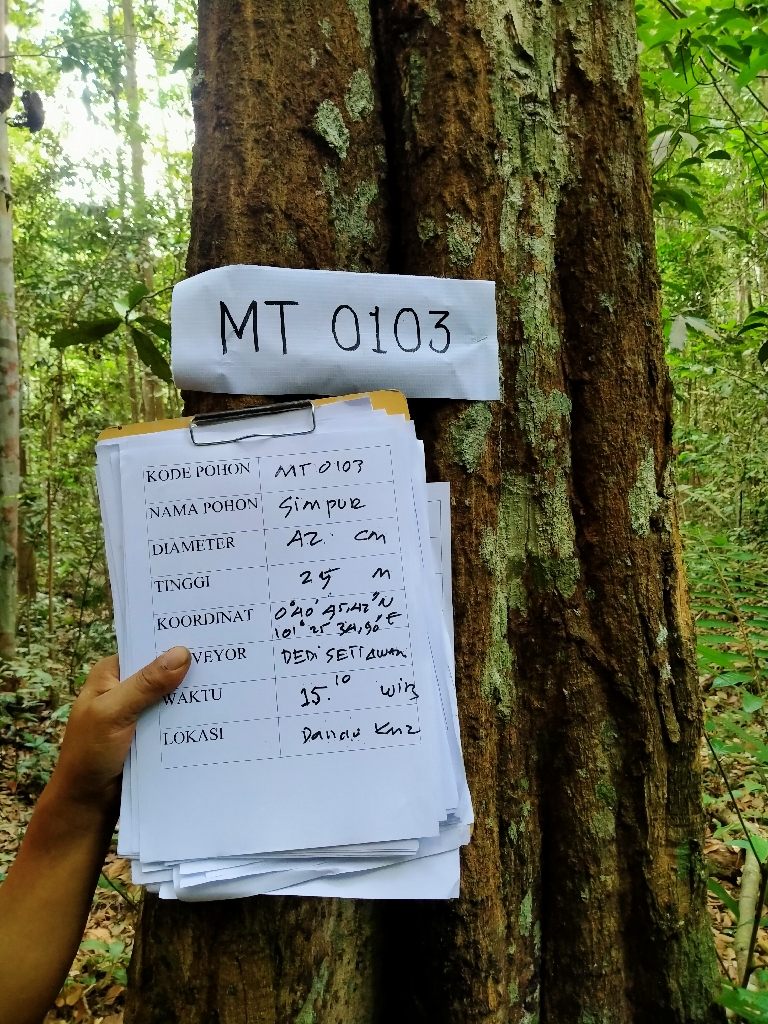 MT 0103
KODE POHON MT 0103
NAMA POHON Simpur
DIAMETER 42 cm
TINGGI 25 M
KOORDINAT 0°40'45,42"N
101°25'34,90"E
VEYOR DEDI SETIAWAN
WAKTU 15.10 WIB
LOKASI